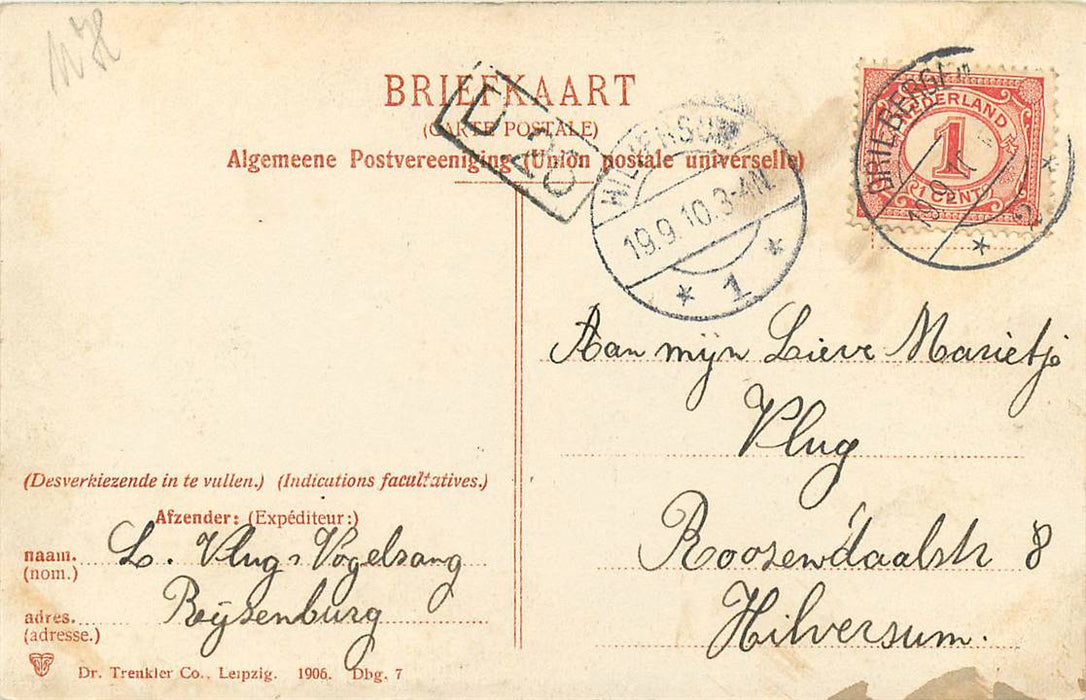 BRIEFKAART
(CARTE POSTALE)
Algemeene Postvereeniging (Union postale universelle)
HILVERSUM
19.9.10.3-4N
1
DRIEBERGEN
19.9
2
NEDERLAND
1
1 CENT
Aan mijn Lieve Marietje
Vlug
Roosendaalstr 8
Hilversum.
(Desverkiezende in te vullen.) (Indications facultatives.)
Afzender: (Expéditeur:)
naam. L. Vlug-Vogelsang
(nom.)
Rijsenburg
adres.
(adresse.)
Dr. Trenkler Co., Leipzig. 1906. Dbg. 7